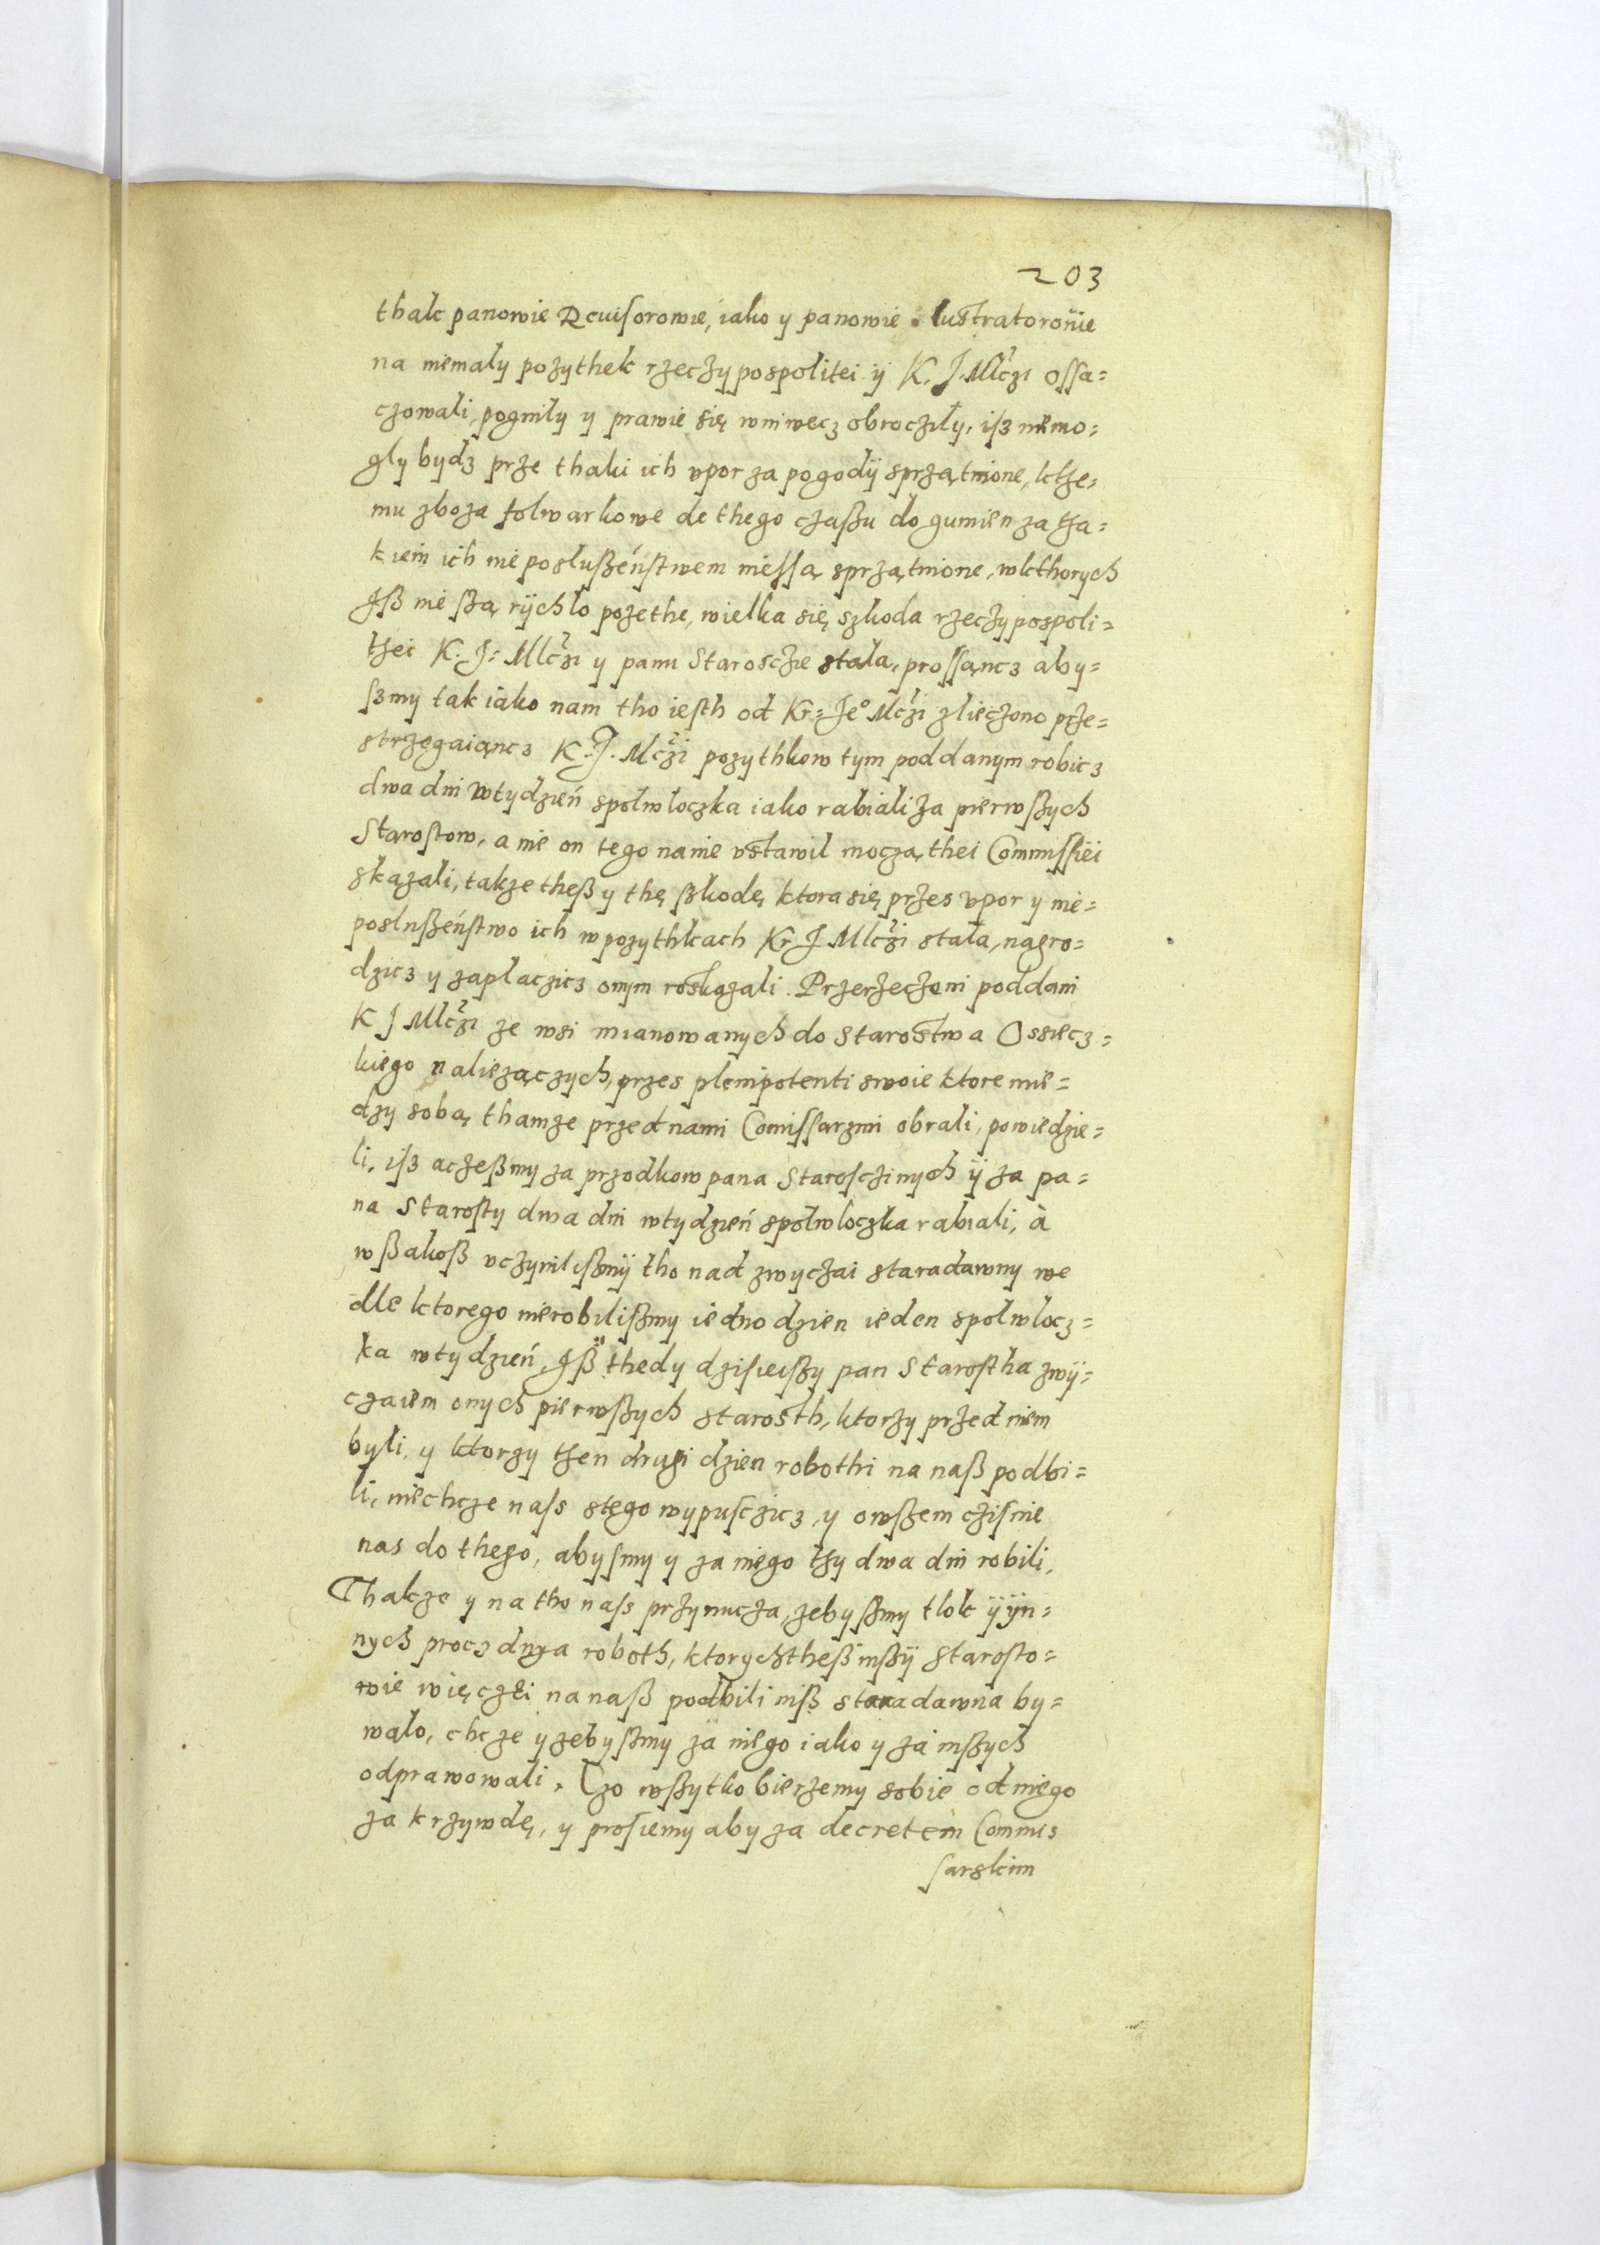 203
thak panowie Reuisorowie, iako y panowie lustratorowie
na niemały pożythek rzeczypospolitei ÿ K. J. Młczi ossa=
czowali, pogniły y prawie się wniwecz obrocziły, isz niemo=
gły bydz prze thaki ich vpor za pogodÿ sprzątnione, ktże=
mu zboza folwarkowe de thego czaßu do gumien za tża=
kiem ich nieposłußeństwem niessą sprzątnione, wkthorych
Jß nie szą rÿchło pozethe, wielka się szkoda rzeczypospoli=
tżei K. J= Młczi y panu Staroscżie stała, prossąncz aby=
szmy tak iako nam tho iesth od Kr= Je° Mczi zlieczono prze=
strzegaiąncz K. J. Mczi pozythkow tym poddanym robicz
dwa dni wtydzień społwłoczka iako rabiali za pierwszych
Starostow, a nie on tego nanie vstawił moczą thei Commissiei
skazali, takze theß y thę szkodę ktora się przes vpor y nie=
posłußeństwo ich wpozythkach Kr J Młczi stała, nagro=
dzicz y zapłaczicz onym roskazali. Przerzeczoni poddani
K J Młczi ze wsi mianowanych do Starostwa Ossiecz=
kiego naliezączych, przes plenipotenti swoie ktore mie=
dzy sobą thamze przed nami Comissarzmi obrali, powiedzie=
li, isz aczeßmy za przodkow pana Starosczinych ÿ za pa=
na Starosty dwa dni wtydzień społwłoczka rabiali, à
wßakoß vczyniliszmÿ tho nad zwyczai staradawny we
dle ktorego nierobilißmy iedno dzien ieden społwłocz=
ka wtydzień, Jß thedy dzisieiszy pan Starostha zwÿ=
czaiem onych pierwszych starosth, ktorzy przed niem
byli, y ktorzy tżen drugi dzien robothi na naß podbi=
li, niechcze nass stego wypusczicz, y owszem cziśnie
nas do thego, abysmy y za niego tży dwa dni robili,
Thakze y na tho nass przynucza, zebyszmy tłok ÿ ÿn=
nych procz dnya roboth, ktorychtheß inßÿ starosto=
wie więczei na naß podbili niß staradawna by=
wało, chcze y zebyszmy za niego iako y za inszych
odprawowali, Czo wszytko bierzemy sobie od niego
za krzywdę, y prosiemy aby za decretem Commis
sarskim